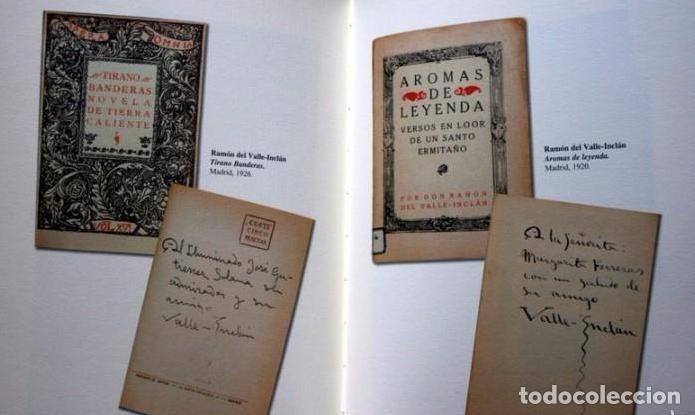 OPERA OMNIA
TIRANO
BANDERAS
NOVELA
DE TIERRA
CALIENTE
Ramón del Valle-Inclán
Tirano Banderas.
Madrid, 1926.
CUESTA
CINCO
PESETAS
Al Iluminado José Gu-
tierrez Solana su
admirador y su
amigo
Valle-Inclán
AROMAS
DE
LEYENDA
VERSOS EN LOOR
DE UN SANTO
ERMITAÑO
POR DON RAMÓN
DEL VALLE-INCLÁN
Ramón del Valle-Inclán
Aromas de leyenda.
Madrid, 1920.
A la Señorita:
Margarita Ferreras
con un saludo de
su amigo
Valle-Inclán
todocoleccion